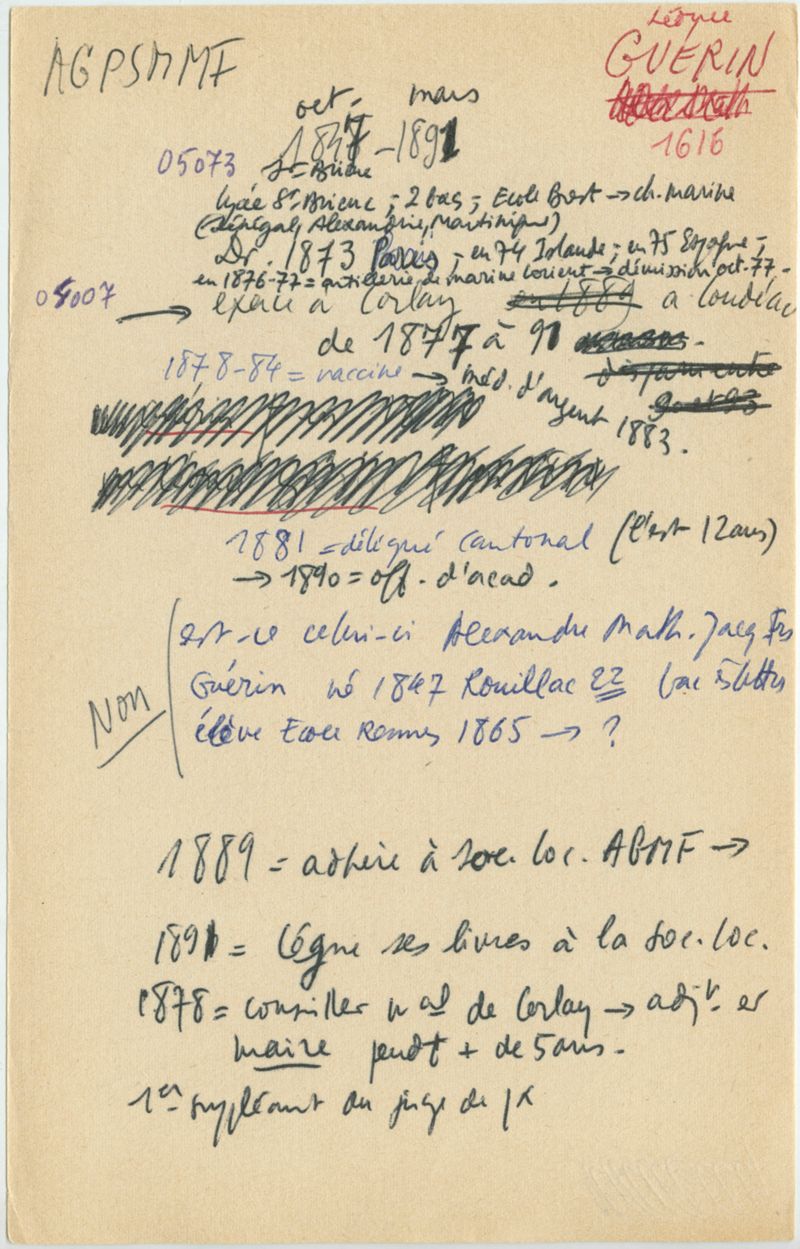 AGPSMMF
Léonce
GUERIN
1616
oct. mars
1847-1891
05073 St-Brieuc
lycée St-Brieuc ; 2 bacs ; Ecole Brest → ch. marine
(Sénégal, Alexandrie, Martinique)
Dr. 1873 Paris ; en 74 Islande ; en 75 Espagne ;
en 1876-77 = artillerie de marine Lorient → démission oct-77-
→ exerce à Corlay en 1889 à Loudéac
de 1877 à 91 -
1878-84 = vaccine → méd. d'argent 1883.
1881 = délégué cantonal (l'est 12 ans)
→ 1890 = off. d'acad.
est-ce celui-ci Alexandre Math. Jacq Frs
Guérin né 1847 Rouillac 22 bac ès lettres
Non
élève Ecole Rennes 1865 → ?
1889 = adhère à soc. loc. AGMF →
1891 = lègue ses livres à la soc. loc.
1878 = conseiller mal de Corlay → adjt. et
maire pendt + de 5 ans.
1er suppléant du juge de px